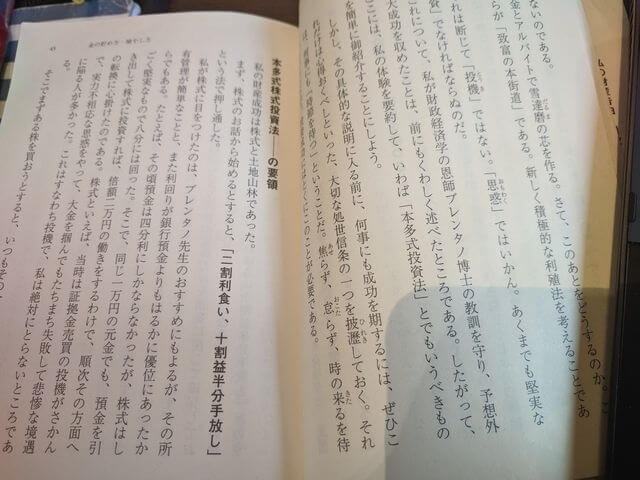 私の財産告白
ないのである。
金とアルバイトで雪達磨の芯を作る。さて、このあとをどうするのか。こ
らが「致富の本街道」である。新しく積極的な利殖法を考えることであ
れは断じて「投機」ではない。「思惑」ではいかん。あくまでも堅実な
資」でなければならぬのだ。
これについて、私が財政経済学の恩師ブレンタノ博士の教訓を守り、予想外
大成功を収めたことは、前にもくわしく述べたところである。したがって、
ここには、私の体験を要約して、いわば「本多式投資法」とでもいうべきもの
を簡単に御紹介することにしよう。
しかし、その具体的な説明に入る前に、何事にも成功を期するには、ぜひこ
れだけは心得おくべしといった、大切な処世信条の一つを披瀝しておく。それ
は、何事にも「時節を待つ」ということだ。焦らず、怠らず、時の来るを待
つ
ことが必要である。
金の貯め方・殖やし方
本多式株式投資法――の要領
私の財産成功は株式と土地山林であった。
まず、株式のお話から始めるとすると、「二割利食い、十割益半分手放し」
という法で押し通した。
私が株式に目をつけたのは、ブレンタノ先生のおすすめにもよるが、その所
有管理が簡単なことと、また利回りが銀行預金よりもはるかに優位にあったか
らでもある。たとえば、その頃預金は四分利にしかならなかったが、株式はし
ごく堅実なもので八分には回った。そこで、同じ一万円の元金でも、預金を引
き出して株式に投資すれば、倍額二万円の働きをするわけで、順次その方面へ
の転換に心掛けたのである。株式といえば、当時は証拠金売買の投機がさかん
で、実力不相応な思惑をやって、大金を掴んでもたちまち失敗して悲惨な境遇
に陥る人が多かった。これはすなわち投機で、私は絶対にとらないところであ
る。
そこでまずある株を買おうとすると、いつもその